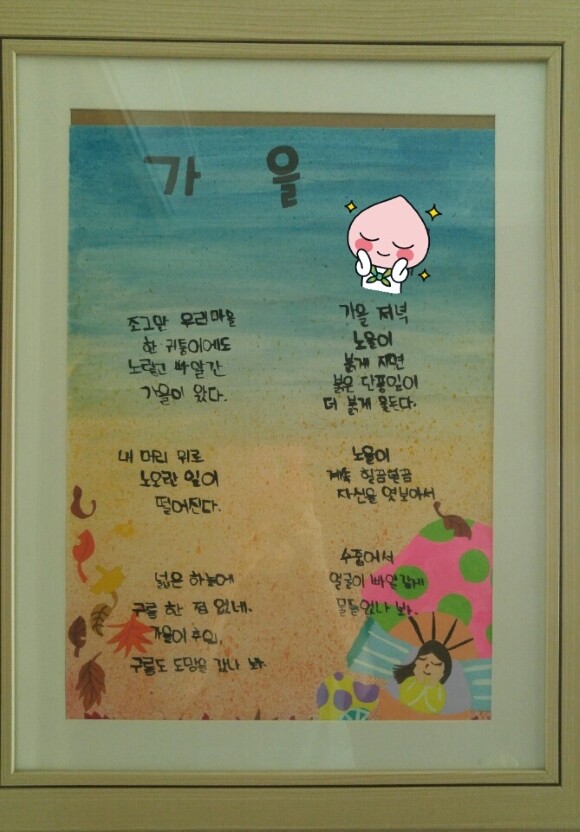 가 을
조그만 우리마을
한 귀퉁이에도
노랗고 빠알간
가을이 왔다.
내 머리 위로
노오란 잎이
떨어진다.
넓은 하늘에
구름 한 점 없네.
가을이 추워,
구름도 도망을 갔나 봐.
가을 저녁
노을이
붉게 지면
붉은 단풍잎이
더 붉게 물든다.
노을이
계속 힐끔힐끔
자신을 엿보아서
수줍어서
얼굴이 빠알갛게
물들었나 봐.